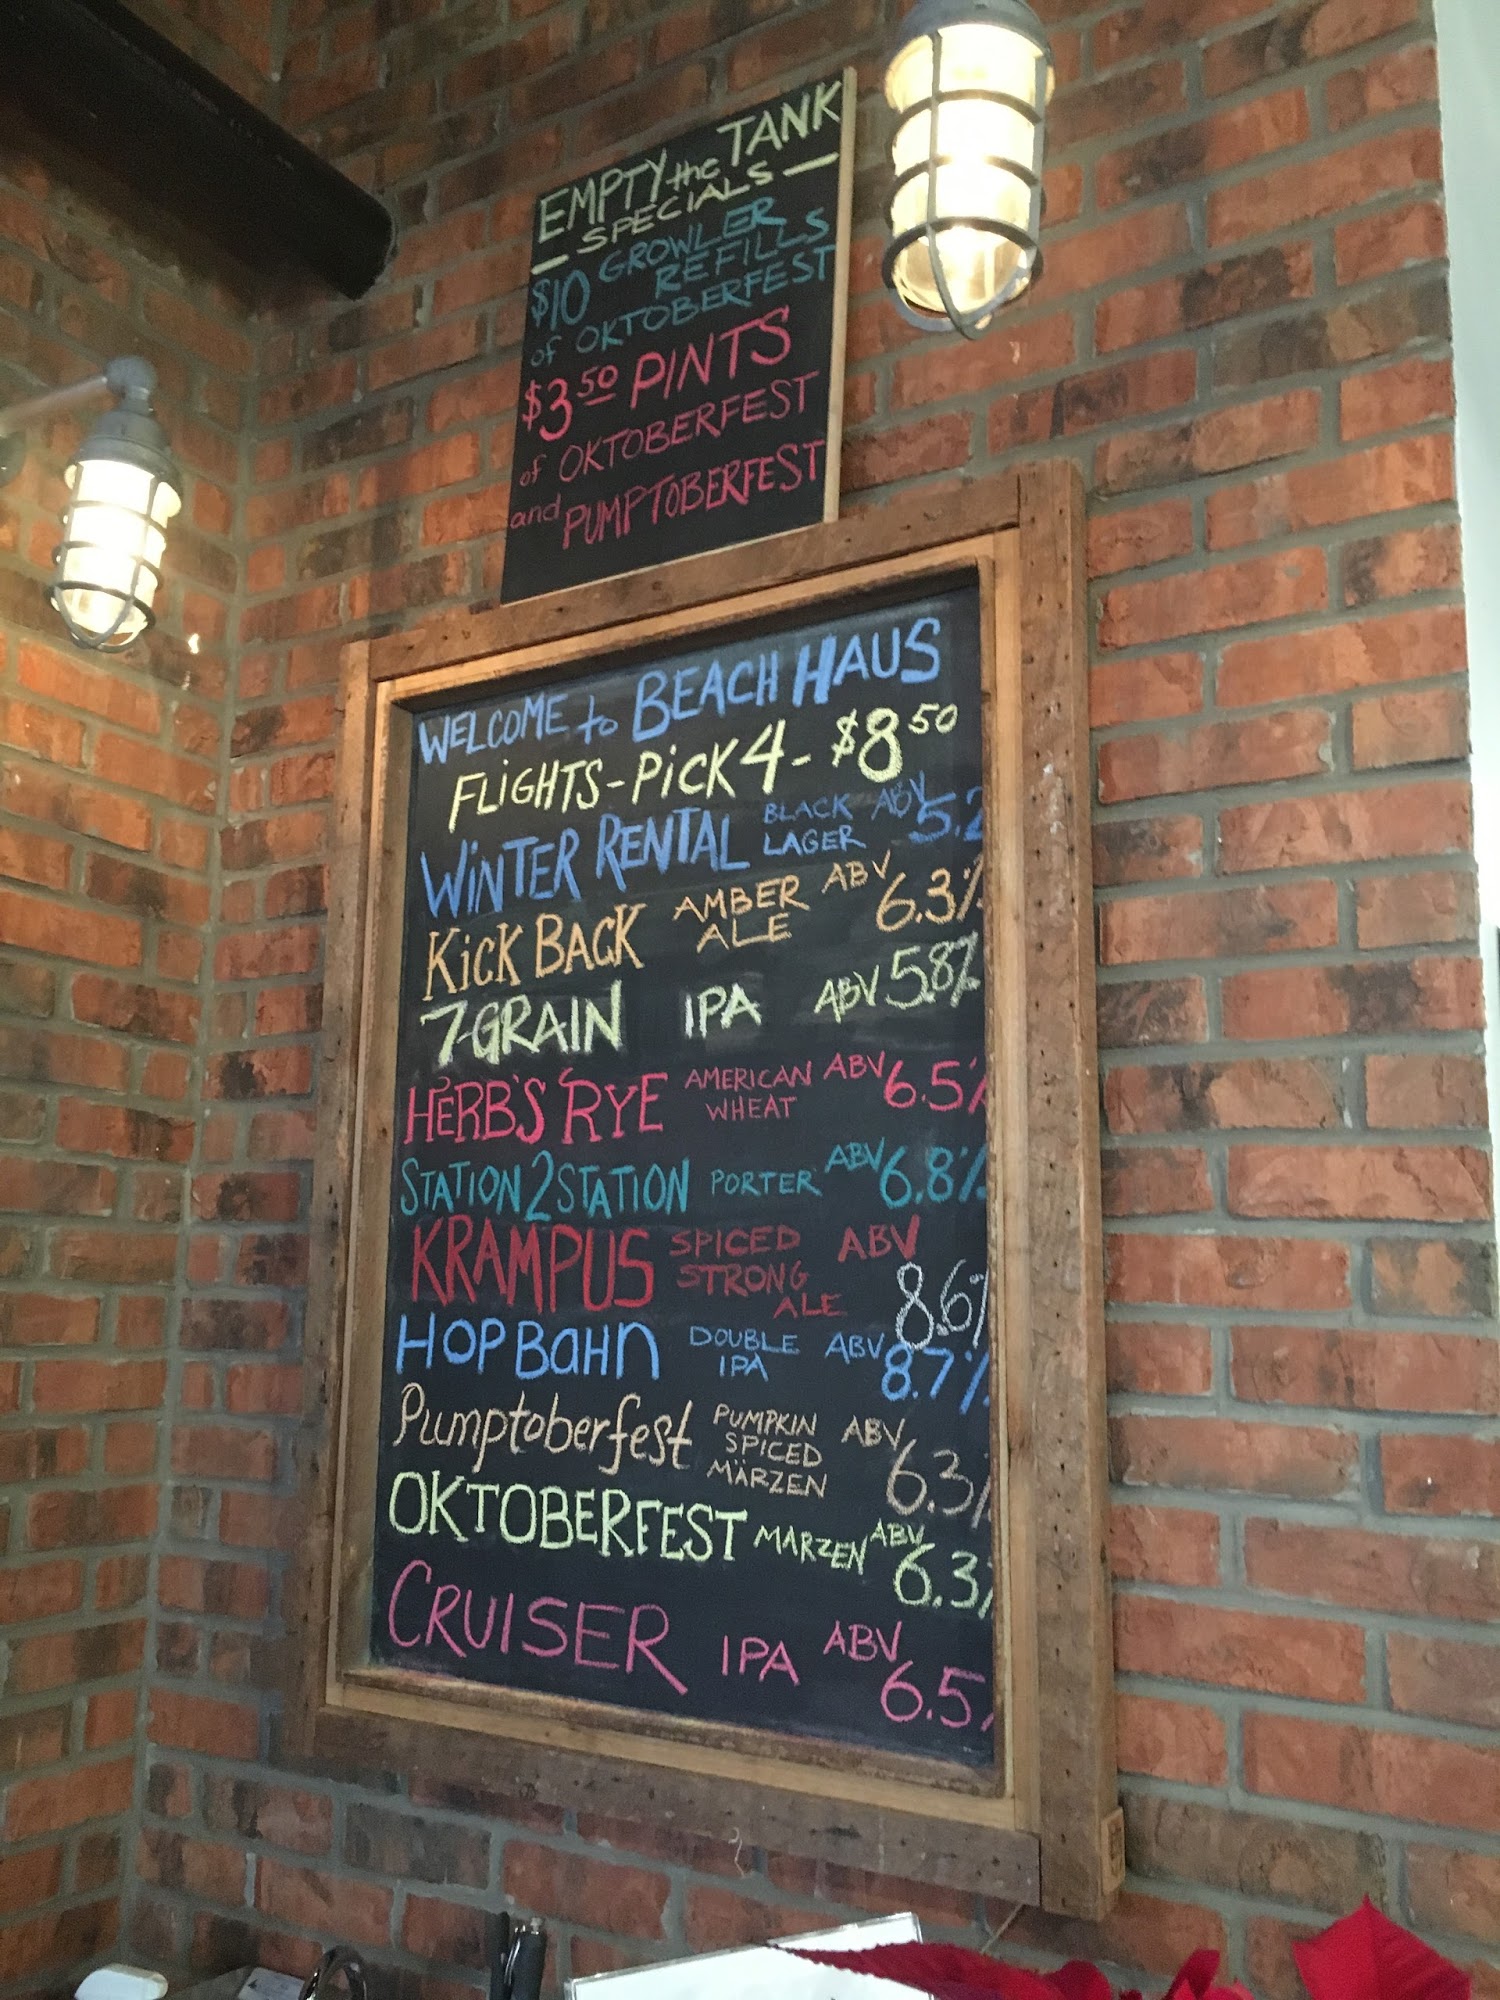 EMPTY the TANK
SPECIALS
$10 GROWLER
REFILLS
of OKTOBERFEST
$3.50 PINTS
of OKTOBERFEST
and PUMPTOBERFEST
WELCOME to BEACH HAUS
FLIGHTS - PICK 4 - $8.50
WINTER RENTAL BLACK LAGER ABV 5.2
KICK BACK AMBER ALE ABV 6.3%
7-GRAIN IPA ABV 5.8%
HERB'S RYE AMERICAN WHEAT ABV 6.5%
STATION 2 STATION PORTER ABV 6.8%
KRAMPUS SPICED STRONG ALE ABV 8.6%
HOP BAHN DOUBLE IPA ABV 8.7%
Pumptoberfest PUMPKIN SPICED MÄRZEN ABV 6.3%
OKTOBERFEST MARZEN ABV 6.3%
CRUISER IPA ABV 6.5%